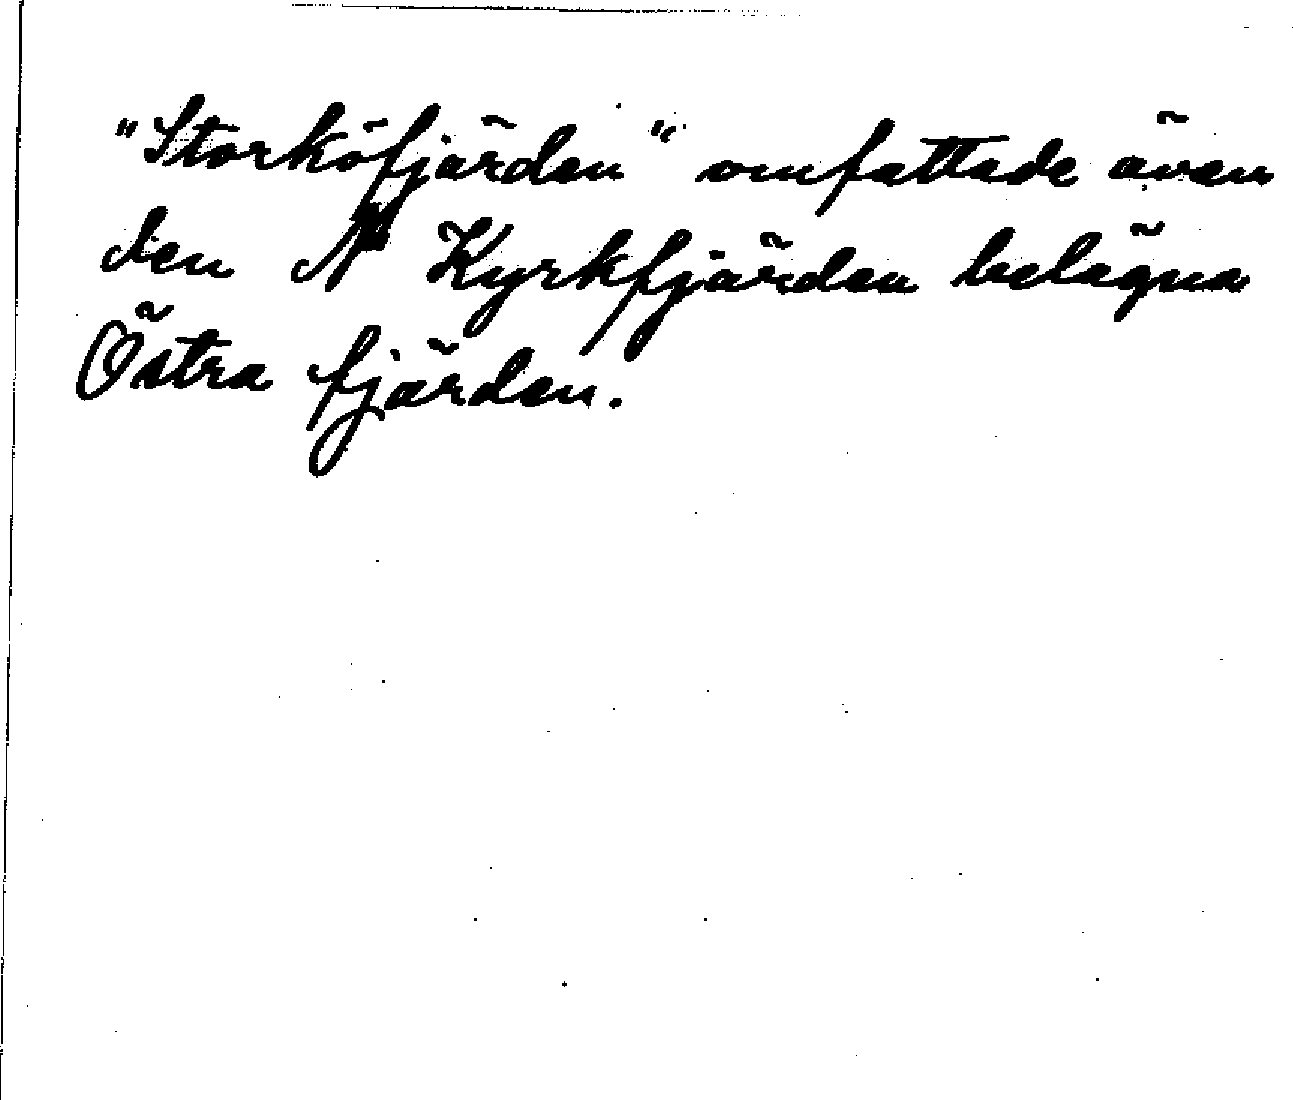 "Storköfjärden" omfattade även
den N Kyrkfjärden belägna
Östra fjärden.